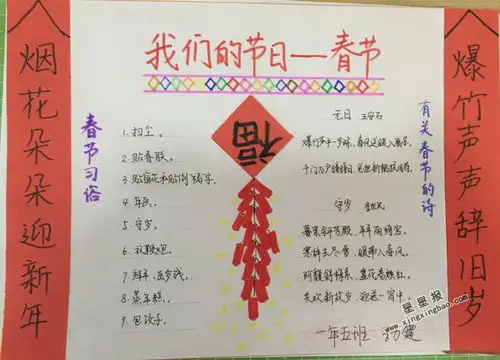 我们的节日—春节
爆竹声声辞旧岁
烟花朵朵迎新年
春节习俗
1. 扫尘。
2. 贴春联。
3. 贴窗花和贴倒“福”字。
4. 年画。
5. 守岁。
6. 放鞭炮。
7. 拜年、压岁钱。
8. 蒸年糕。
9. 包饺子。
福
有关春节的诗
元日 王安石
爆竹声中一岁除，春风送暖入屠苏。
千门万户曈曈日，总把新桃换旧符。
守岁
寒辞去冬雪，暖带入春风。
一年五班
星星报
www.xingxingbao.com